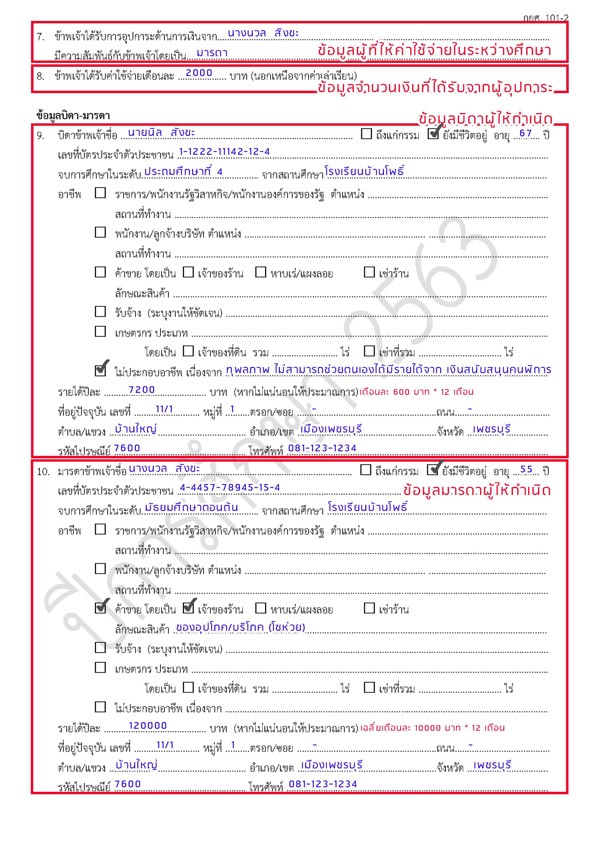 กยศ. 101-2
7. ข้าพเจ้าได้รับการอุปการะด้านการเงินจาก นางนวล สังขะ
มีความสัมพันธ์กับข้าพเจ้าโดยเป็น มารดา ข้อมูลผู้ที่ให้ค่าใช้จ่ายในระหว่างศึกษา
8. ข้าพเจ้าได้รับค่าใช้จ่ายเดือนละ 2000 บาท (นอกเหนือจากค่าเล่าเรียน)
ข้อมูลจำนวนเงินที่ได้รับจากผู้อุปการะ
ข้อมูลบิดา-มารดา
ข้อมูลบิดาผู้ให้กำเนิด
9. บิดาข้าพเจ้าชื่อ นายนิล สังขะ ถึงแก่กรรม ยังมีชีวิตอยู่ อายุ 67 ปี
เลขที่บัตรประจำตัวประชาชน 1-1222-11142-12-4
จบการศึกษาในระดับ ประถมศึกษาที่ 4 จากสถานศึกษา โรงเรียนบ้านโพธิ์
อาชีพ ราชการ/พนักงานรัฐวิสาหกิจ/พนักงานองค์การของรัฐ ตำแหน่ง
สถานที่ทำงาน
พนักงาน/ลูกจ้างบริษัท ตำแหน่ง
สถานที่ทำงาน
ค้าขาย โดยเป็น เจ้าของร้าน หาบเร่/แผงลอย เช่าร้าน
ลักษณะสินค้า
รับจ้าง (ระบุงานให้ชัดเจน)
เกษตรกร ประเภท
โดยเป็น เจ้าของที่ดิน รวม ไร่ เช่าที่รวม ไร่
ไม่ประกอบอาชีพ เนื่องจาก ทุพลภาพ ไม่สามารถช่วยตนเองได้มีรายได้จาก เงินสนับสนุนคนพิการ
รายได้ปีละ 7200 บาท (หากไม่แน่นอนให้ประมาณการ) เดือนละ 600 บาท * 12 เดือน
ที่อยู่ปัจจุบัน เลขที่ 11/1 หมู่ที่ 1 ตรอก/ซอย - ถนน -
ตำบล/แขวง บ้านใหญ่ อำเภอ/เขต เมืองเพชรบุรี จังหวัด เพชรบุรี
รหัสไปรษณีย์ 7600 โทรศัพท์ 081-123-1234
10. มารดาข้าพเจ้าชื่อ นางนวล สังขะ ถึงแก่กรรม ยังมีชีวิตอยู่ อายุ 55 ปี
เลขที่บัตรประจำตัวประชาชน 4-4457-78945-15-4 ข้อมูลมารดาผู้ให้กำเนิด
จบการศึกษาในระดับ มัธยมศึกษาตอนต้น จากสถานศึกษา โรงเรียนบ้านโพธิ์
อาชีพ ราชการ/พนักงานรัฐวิสาหกิจ/พนักงานองค์การของรัฐ ตำแหน่ง
สถานที่ทำงาน
พนักงาน/ลูกจ้างบริษัท ตำแหน่ง
สถานที่ทำงาน
ค้าขาย โดยเป็น เจ้าของร้าน หาบเร่/แผงลอย เช่าร้าน
ลักษณะสินค้า ของอุปโภค/บริโภค (โชห่วย)
รับจ้าง (ระบุงานให้ชัดเจน)
เกษตรกร ประเภท
โดยเป็น เจ้าของที่ดิน รวม ไร่ เช่าที่รวม ไร่
ไม่ประกอบอาชีพ เนื่องจาก
รายได้ปีละ 120000 บาท (หากไม่แน่นอนให้ประมาณการ) เฉลี่ยเดือนละ 10000 บาท * 12 เดือน
ที่อยู่ปัจจุบัน เลขที่ 11/1 หมู่ที่ 1 ตรอก/ซอย - ถนน -
ตำบล/แขวง บ้านใหญ่ อำเภอ/เขต เมืองเพชรบุรี จังหวัด เพชรบุรี
รหัสไปรษณีย์ 7600 โทรศัพท์ 081-123-1234
ปีการศึกษา 2563